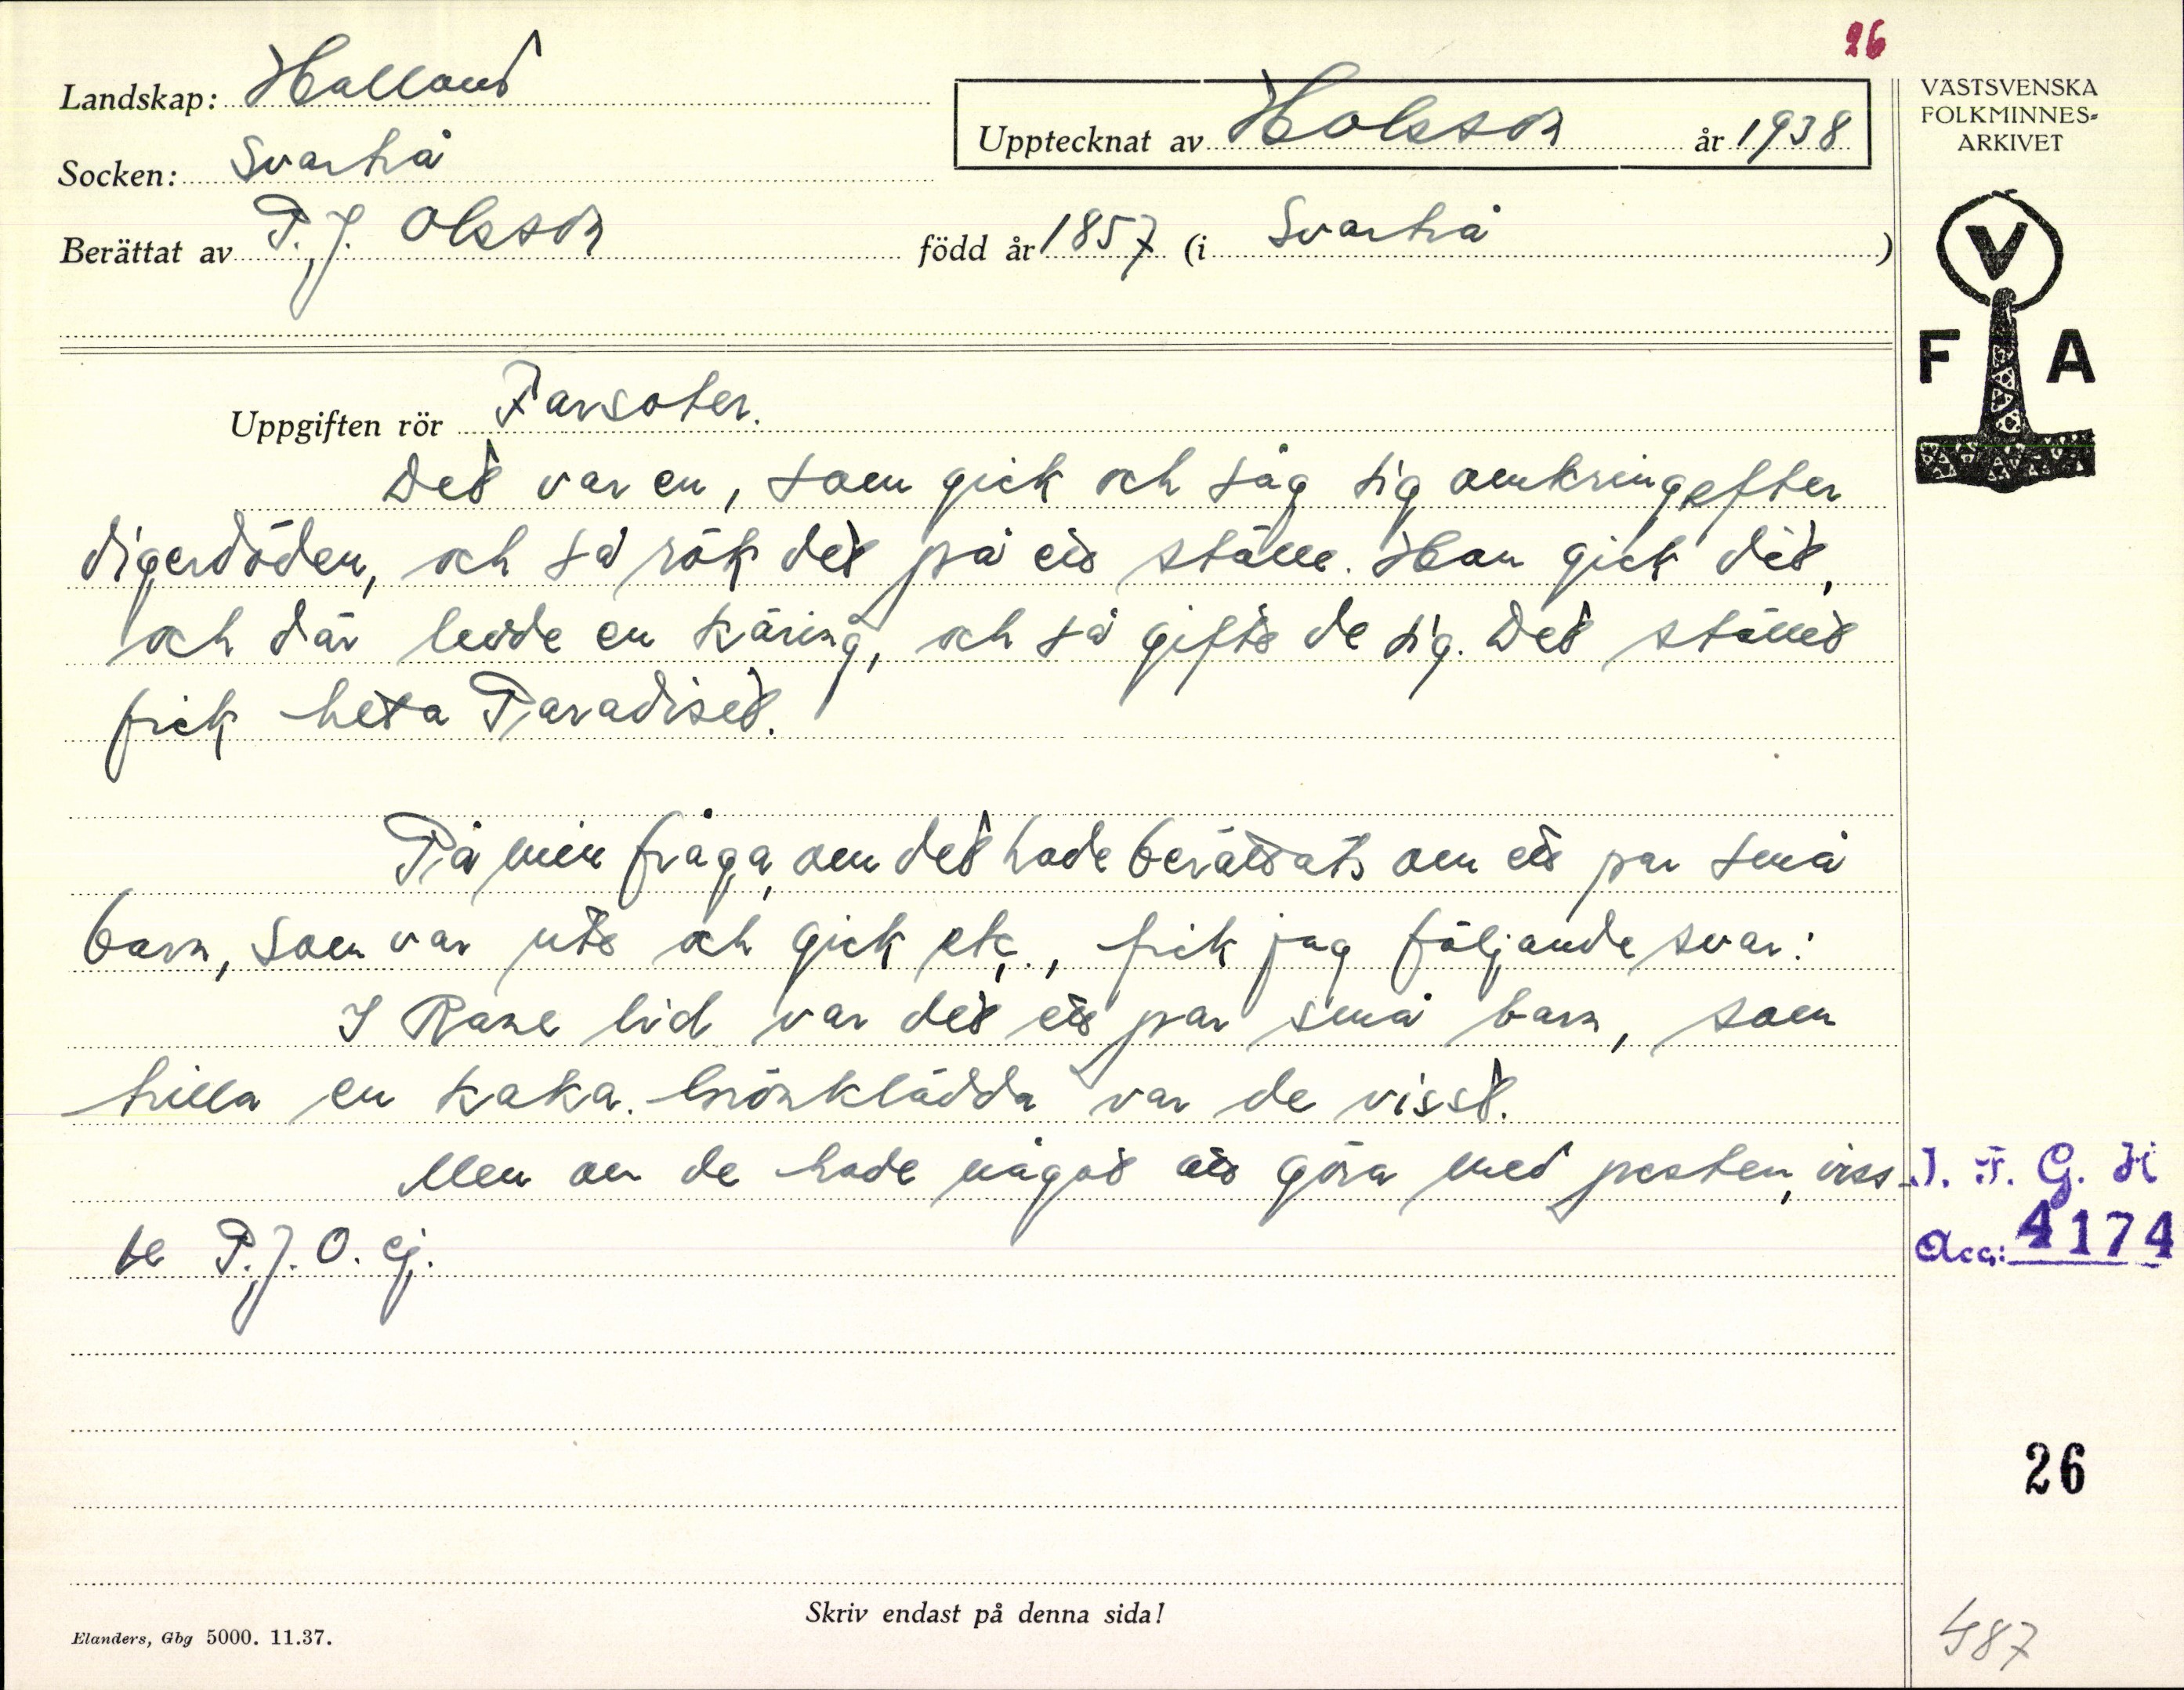 26
Landskap: Halland
Upptecknat av Holsson år 1938
VÄSTSVENSKA
FOLKMINNES-
ARKIVET
Socken: Svartrå
Berättat av P.J. Olsson född år 1857 (i Svartrå )
V
F A
Uppgiften rör Farsoter.
Det var en, som gick och såg sig omkring efter
digerdöden, och så rök det på ett ställe. Han gick dit,
och där levde en käring, och så gifte de sig. Det stället
fick heta Paradiset.
På min fråga, om det hade berättats om ett par små
barn, som var ute och gick etc., fick jag följande svar:
I Rane lid var det ett par små barn, som
trilla en kaka. Grönklädda var de visst.
Men om de hade något att göra med pesten, viss-
te P.J.O. ej.
I. F. G. H
Acc: 4174
26
Skriv endast på denna sida!
Elanders, Gbg 5000. 11.37.
487